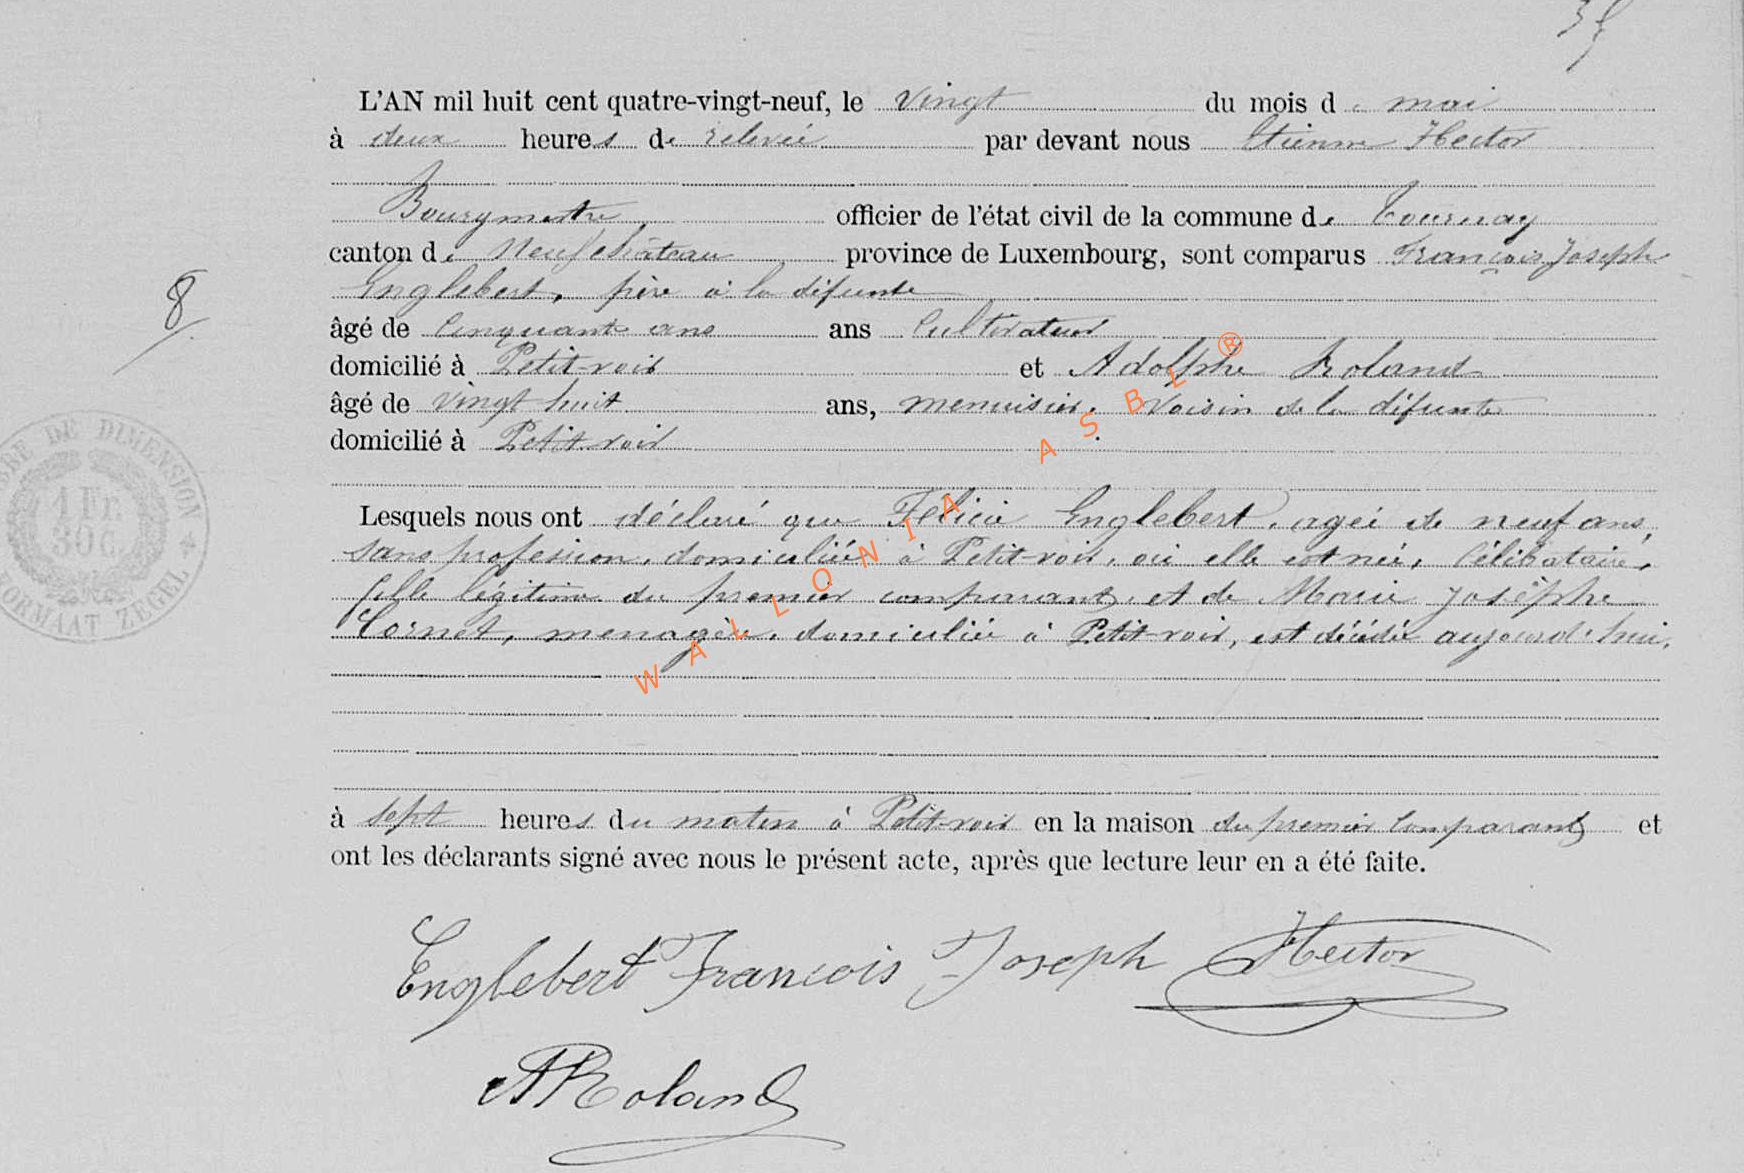 L'AN mil huit cent quatre-vingt-neuf, le vingt du mois de mai
à deux heures de relevée par devant nous Etienne Hector
Bourgmestre officier de l'état civil de la commune de Tournay
canton de Neufchâteau province de Luxembourg, sont comparus François Joseph
Englebert, père à la défunte
8
âgé de cinquante ans ans Cultivateur
domicilié à Petitvoir et Adolphe Roland
âgé de vingt huit ans, menuisier, voisin de la défunte
domicilié à Petitvoir
TIMBRE DE DIMENSION
1 Fr.
30 C.
FORMAAT ZEGEL
Lesquels nous ont déclaré que Félicie Englebert, agée de neuf ans,
sans profession, domiciliée à Petitvoir, où elle est née, célibataire,
fille légitime du premier comparant, et de Marie Josèphe
Cornet, menagère, domiciliée à Petitvoir, est décédée aujourd'hui,
à sept heures du matin à Petitvoir en la maison du premier comparant et
ont les déclarants signé avec nous le présent acte, après que lecture leur en a été faite.
Englebert François Joseph Hector
A Roland
WALLONIA ASBL ®